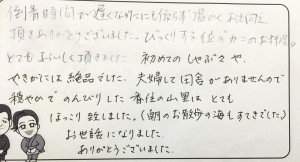 到着時間が遅くなったにも係らず温かくお迎え
頂きありがとうございました。びっくりする位のカニのお料理
とてもおいしく頂きました。初めてのしゃぶみそや
やきがには絶品でした。夫婦して田舎がありませんので
穏やかでのんびりした香住の山里はとても
ほっこり致しました。(朝のお散歩の海もすてきでした)
お世話になりました。
ありがとうございました。